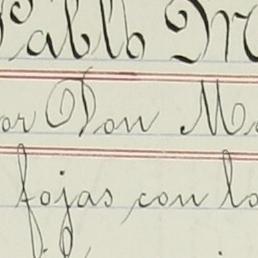 Pablo M
or Don M
fojas, con lo